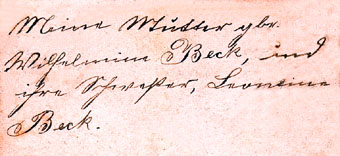 Meine Mutter gbr.
Wilhelmine Beck, und
ihre Schwester, Leontine
Beck.